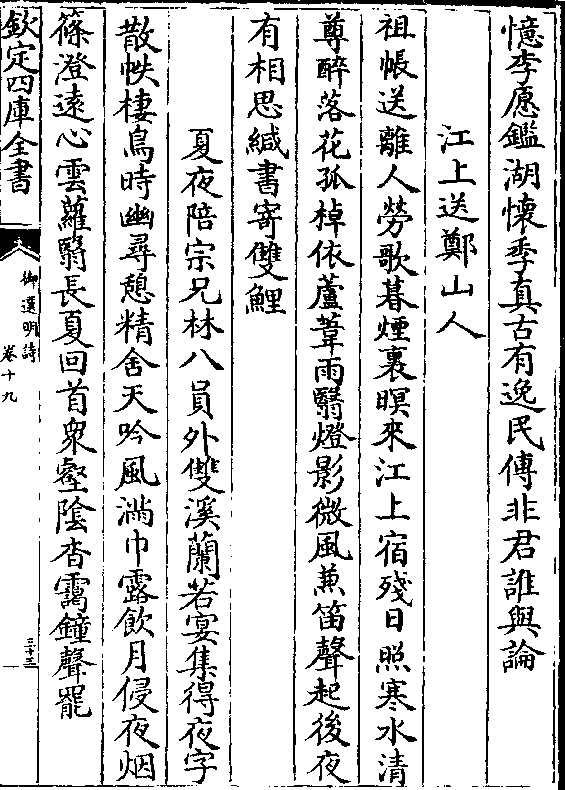 憶李愿鑑湖懷季真古有逸民傳非君誰與論
江上送鄭山人
祖帳送離人勞歌暮煙裏暝來江上宿殘日照寒水清
尊醉落花孤棹依蘆葦雨翳燈影微風兼笛聲起後夜
有相思緘書寄雙鯉
夏夜陪宗兄林八員外雙溪蘭若宴集得夜字
散帙棲鳥時幽尋憩精舍天吟風滿巾露飲月侵夜烟
篠澄遠心雲蘿翳長夏回首衆壑陰杳靄鐘聲罷
欽定四庫全書
御選明詩
卷十九
三十三